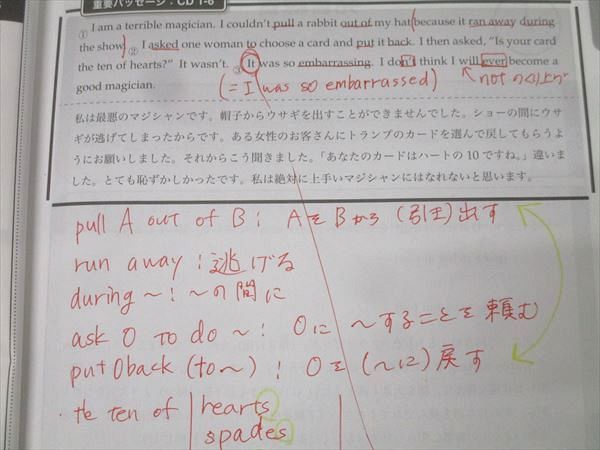 重要パッセージ：CD 1-6
① I am a terrible magician. I couldn't pull a rabbit out of my hat (because it ran away during
the show) ② I asked one woman to choose a card and put it back. I then asked, "Is your card
the ten of hearts?" It wasn't. ③ It was so embarrassing. I don't think I will ever become a
good magician.
(= I was so embarrassed)
notのくり上げ
私は最悪のマジシャンです。帽子からウサギを出すことができませんでした。ショーの間にウサ
ギが逃げてしまったからです。ある女性のお客さんにトランプのカードを選んで戻してもらうよ
うにお願いしました。それからこう聞きました。「あなたのカードはハートの10ですね。」違いま
した。とても恥ずかしかったです。私は絶対に上手いマジシャンにはなれないと思います。
pull A out of B : AをBから (引き)出す
run away : 逃げる
during ～ : ～の間に
ask O to do ～ : Oに ～することを頼む
put O back (to ～) : Oを (～に) 戻す
・the ten of hearts
spades